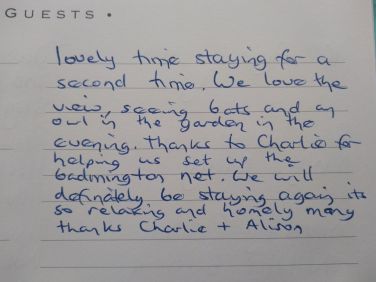 GUESTS •
lovely time staying for a
second time. We love the
view, seeing bats and an
owl in the garden in the
evening. Thanks to Charlie for
helping us set up the
badmington net. We will
definately be staying again its
so relaxing and homely many
thanks Charlie + Alison